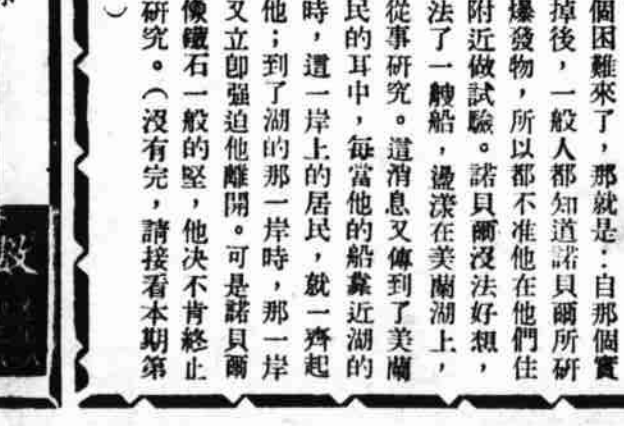 個困難來了，那就是：自那個實
掉後，一般人都知道諾貝爾所研
爆發物，所以都不准他在他們住
附近做試驗。諾貝爾沒法好想，
法了一艘船，盪漾在美蘭湖上，
從事研究。這消息又傳到了美蘭
民的耳中，每當他的船靠近湖的
時，這一岸上的居民，就一齊起
他；到了湖的那一岸時，那一岸
又立卽强迫他離開。可是諾貝爾
像鐵石一般的堅，他决不肯終止
研究。（沒有完，請接看本期第
）